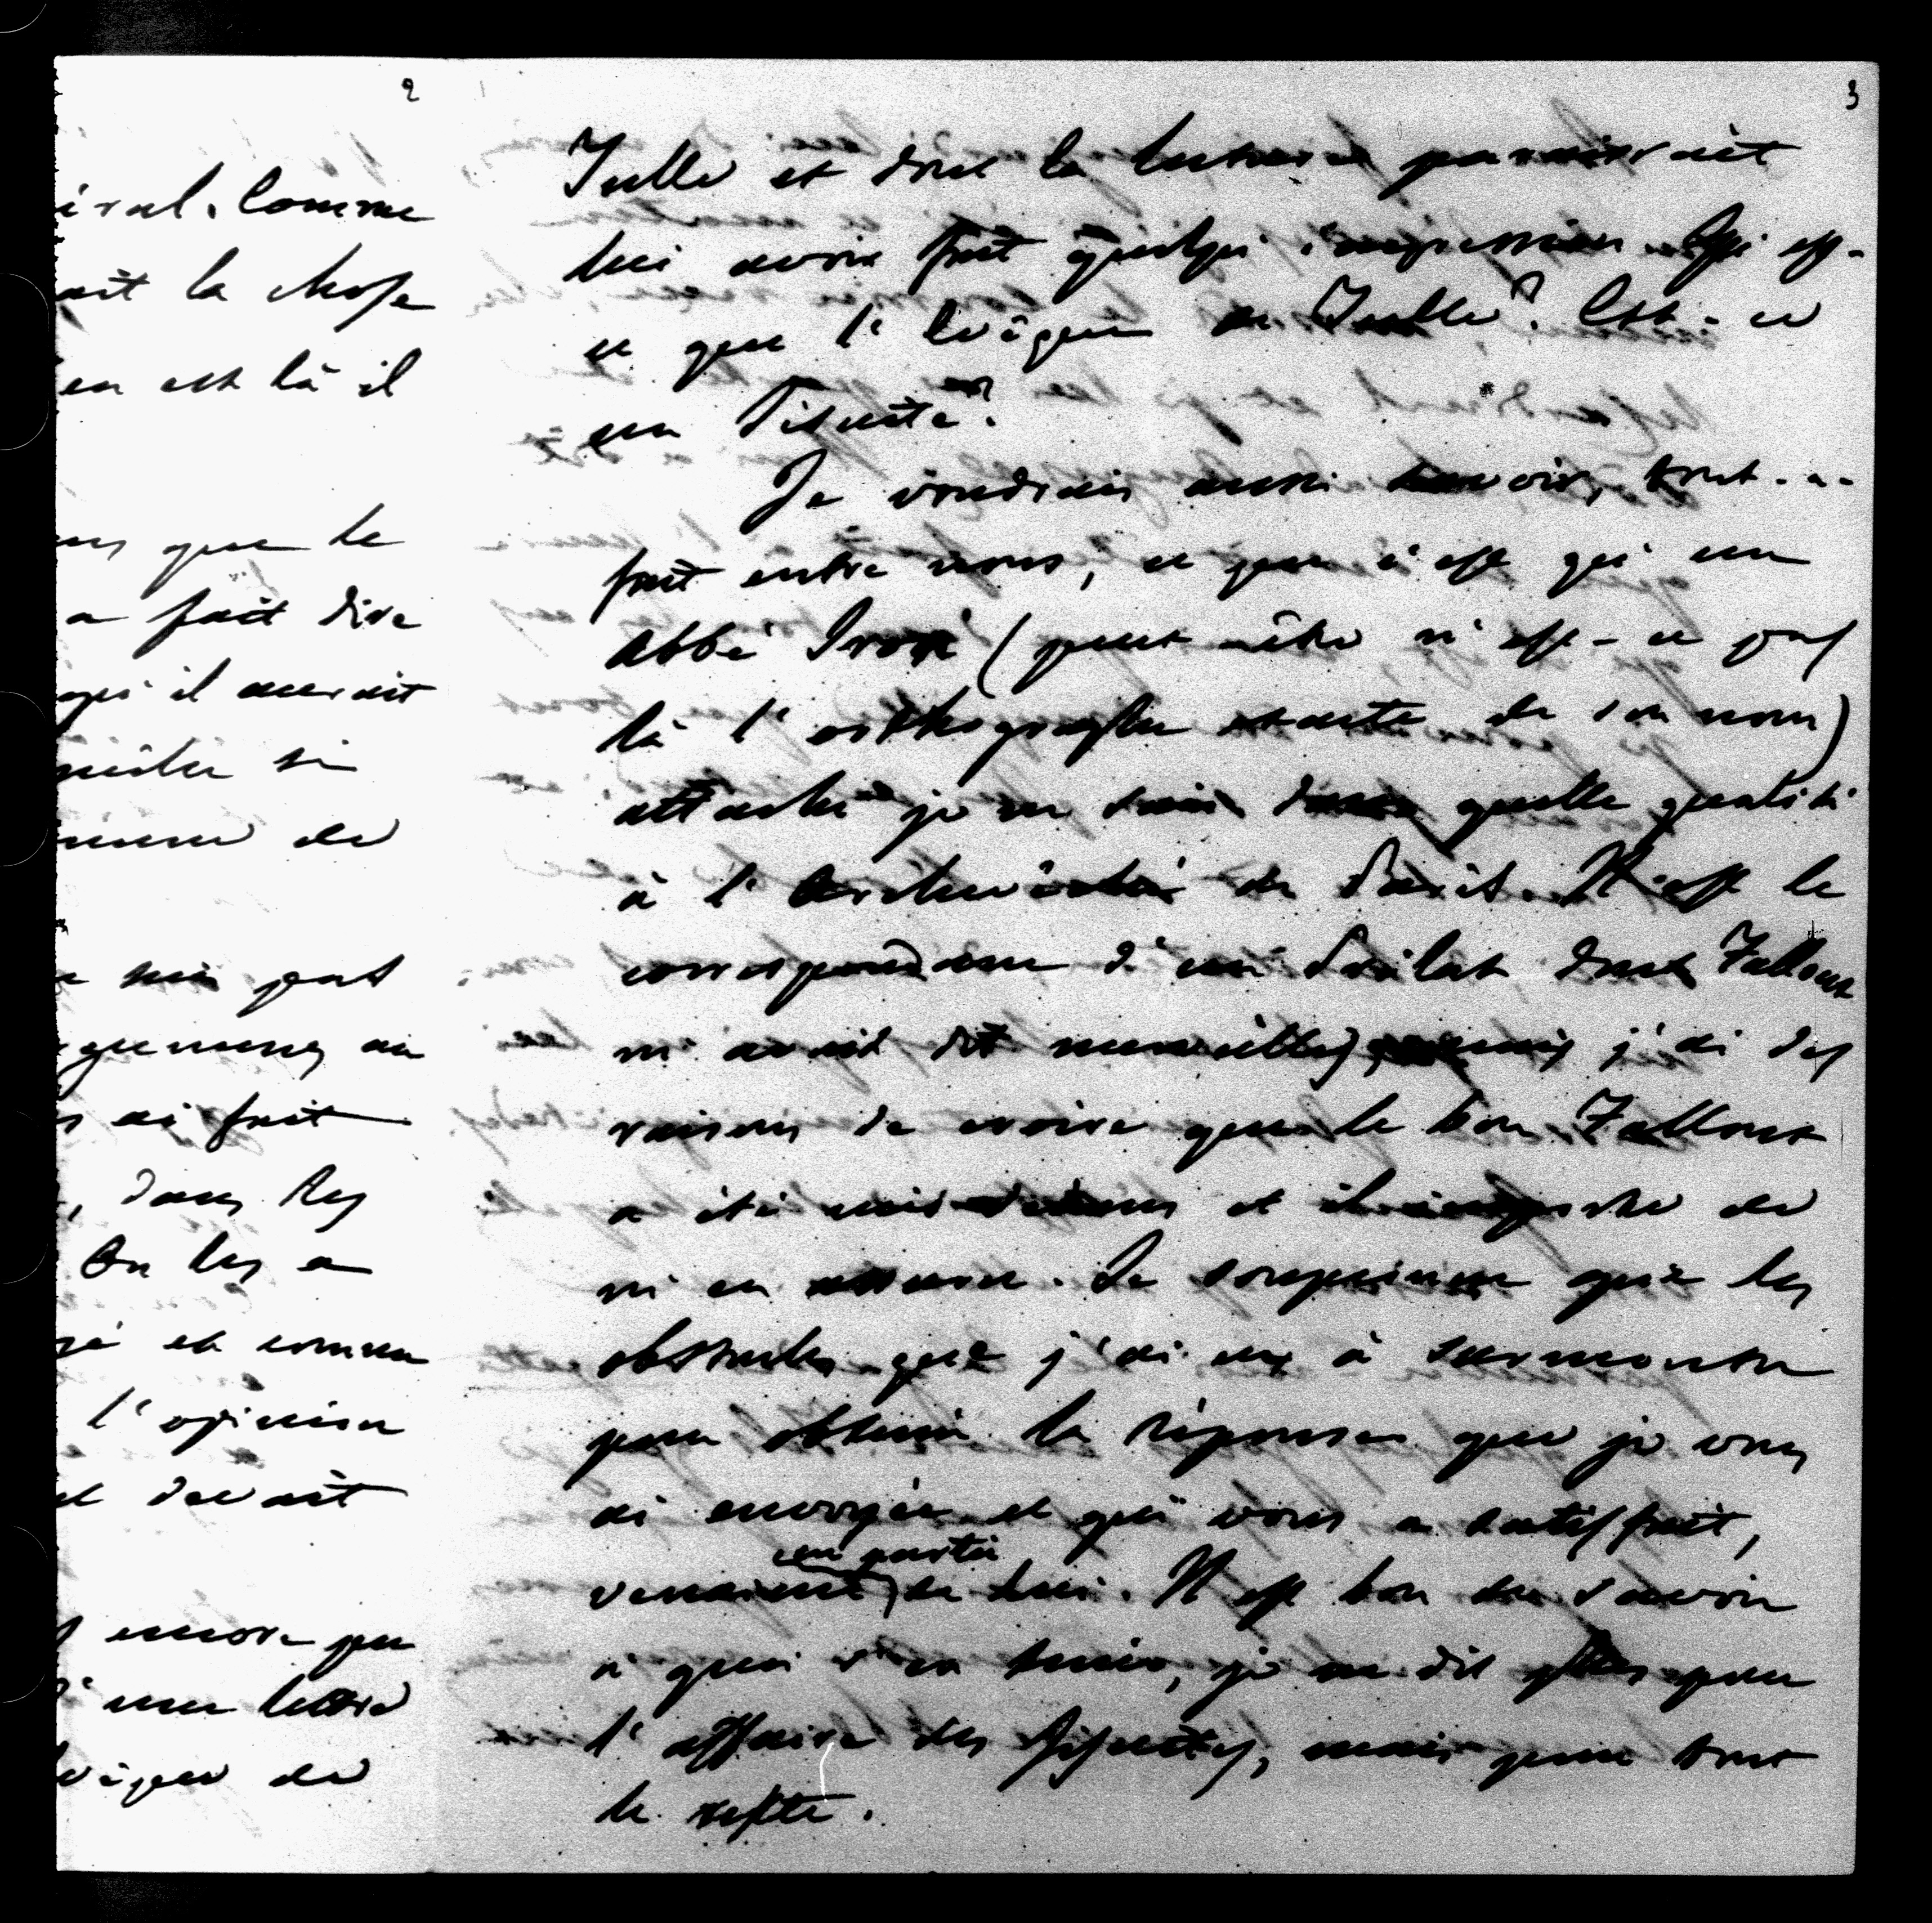 2
éral. Comme
ait la chose
en est là il
que le
a fait dire
qu'il aurait
si
de
suis pas
au
ai fait
, dans les
On les a
et comme
l'opinion
et devait
encore pu
d'une lettre
évêque de
3
Tulle et dont la lecture paraitrait
lui avoir fait quelqu'impression. Qu'est-
ce que l'Evêque de Tulle? Est-ce
un Jésuite?
Je voudrais aussi savoir, tout-a-
fait entre nous, ce que c'est qu'un
abbé (peut-être n'est-ce pas
là l'orthographe exacte de son nom)
attaché je ne sais dans quelle qualité
à l'Archevêché de Paris. Il est le
correspondant d'un Prélat dont Falloux
m'avait dit merveilles, mais j'ai des
raisons de croire que le bon Falloux
a été mis dedans et il importe de
m'en assurer. Je soupçonne que les
obstacles que j'ai eus à surmonter
pour obtenir la réponse que je vous
ai envoyée et qui vous a satisfait,
en partie
venaient de lui. Il est bon de savoir
à quoi s'en tenir, je ne dis plus pour
l'affaire des Jésuites, mais pour tout
le reste.